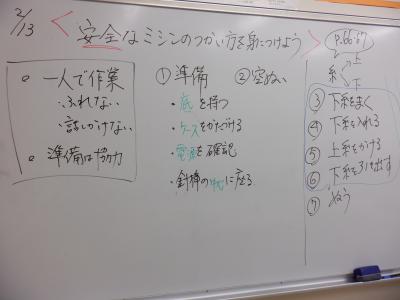 2/13
<安全なミシンのつかい方を身につけよう>
○一人で作業
・ふれない
・話しかけない
○準備は協力
①準備
・底を持つ
・ケースをかたづける
・電源を確認
・針棒の中心に座る
②空ぬい
P.66・67
糸く上
下
③下糸をまく
④下糸を入れる
⑤上糸をかける
⑥下糸を引き出す
⑦ぬう